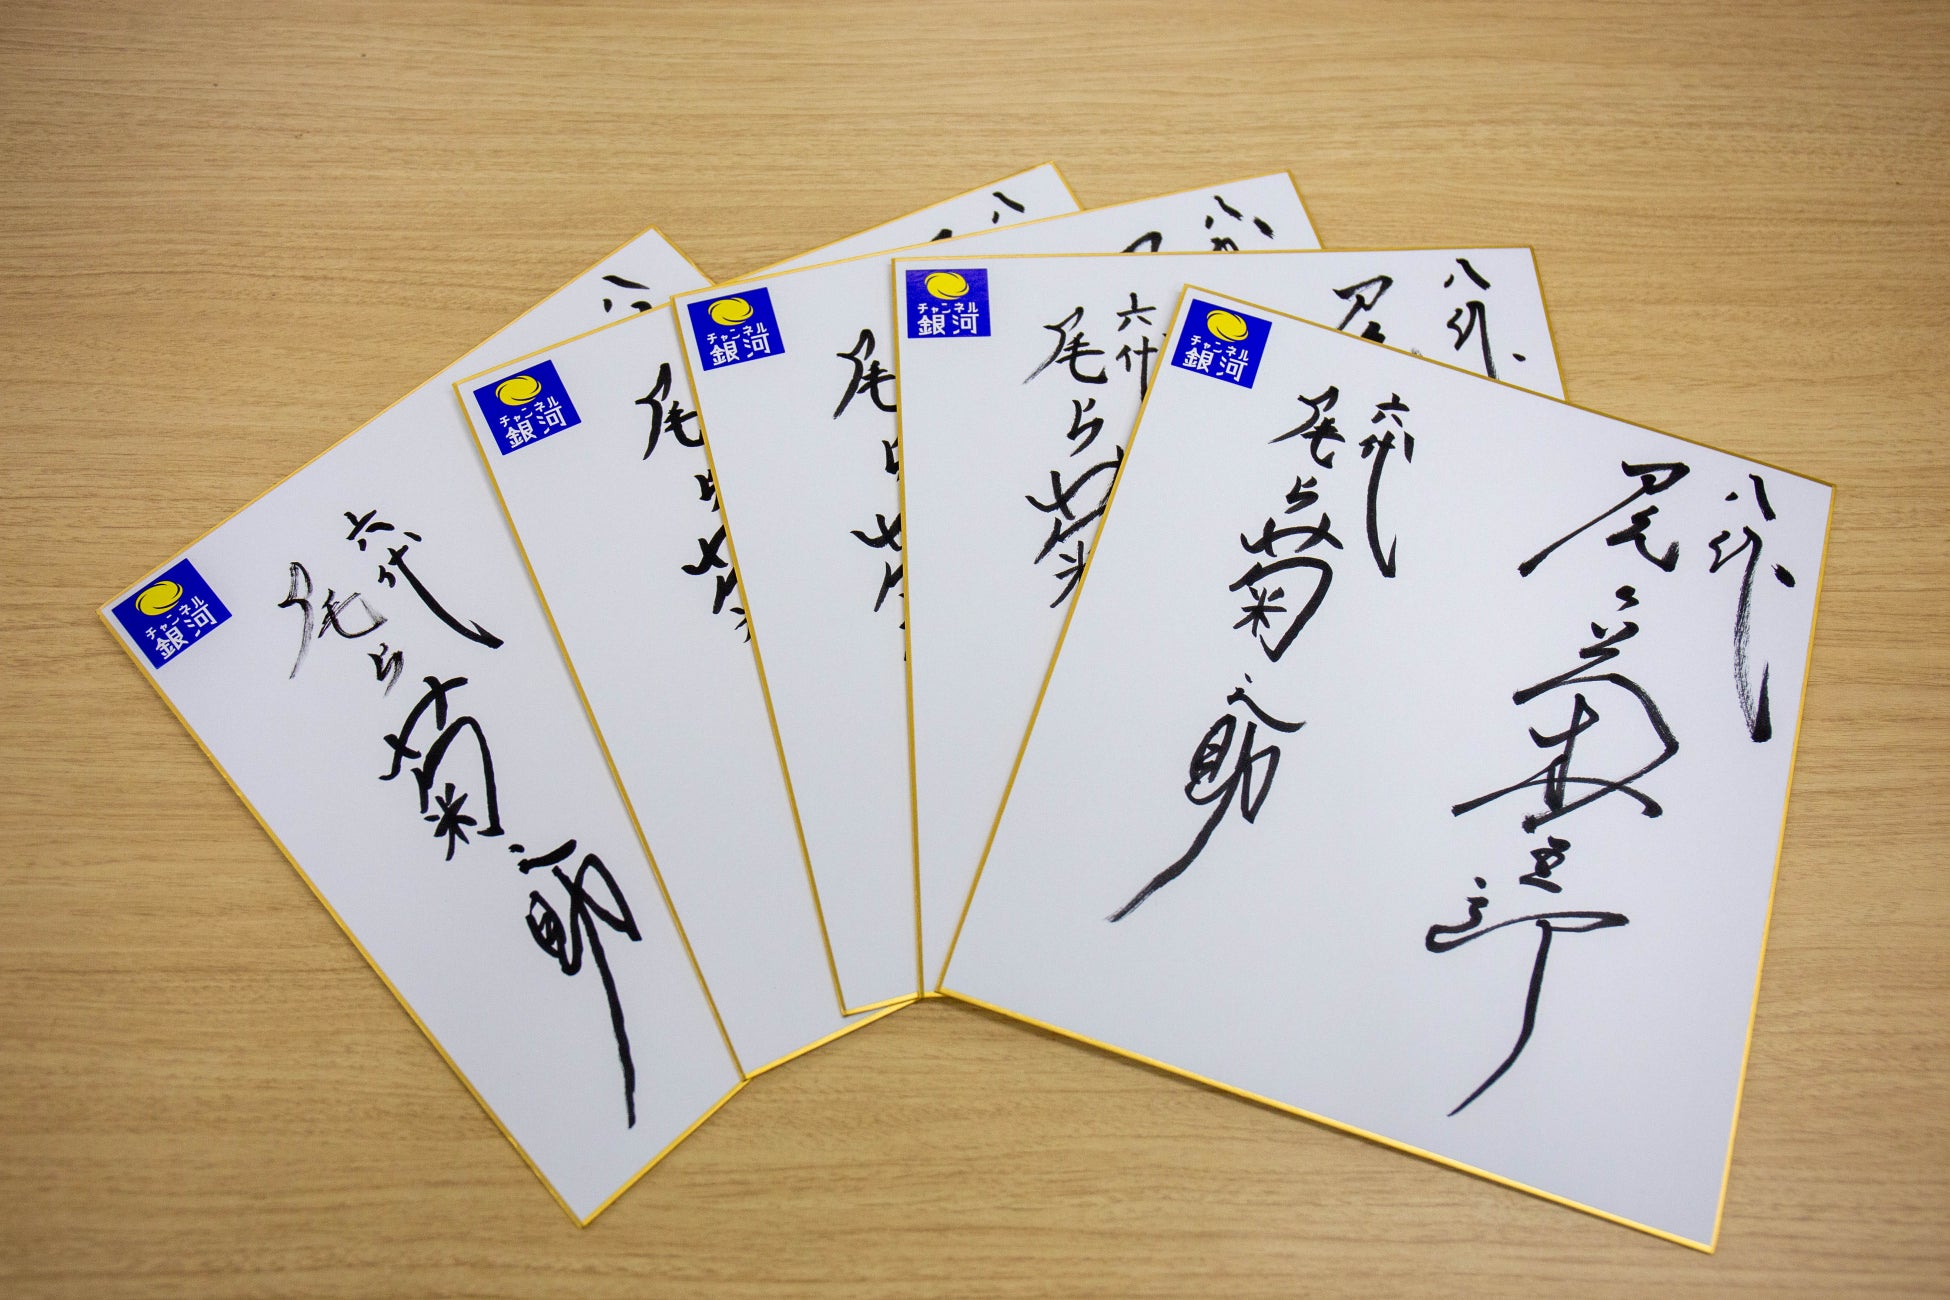 チャンネル
銀河
六代
尾上
菊
助
八
チャンネル
銀河
尾上
菊
八
チャンネル
銀河
尾上
菊
八代
チャンネル
銀河
六代
尾上菊
八代
尾
チャンネル
銀河
八代
尾上菊五郎
六代
尾上菊之助